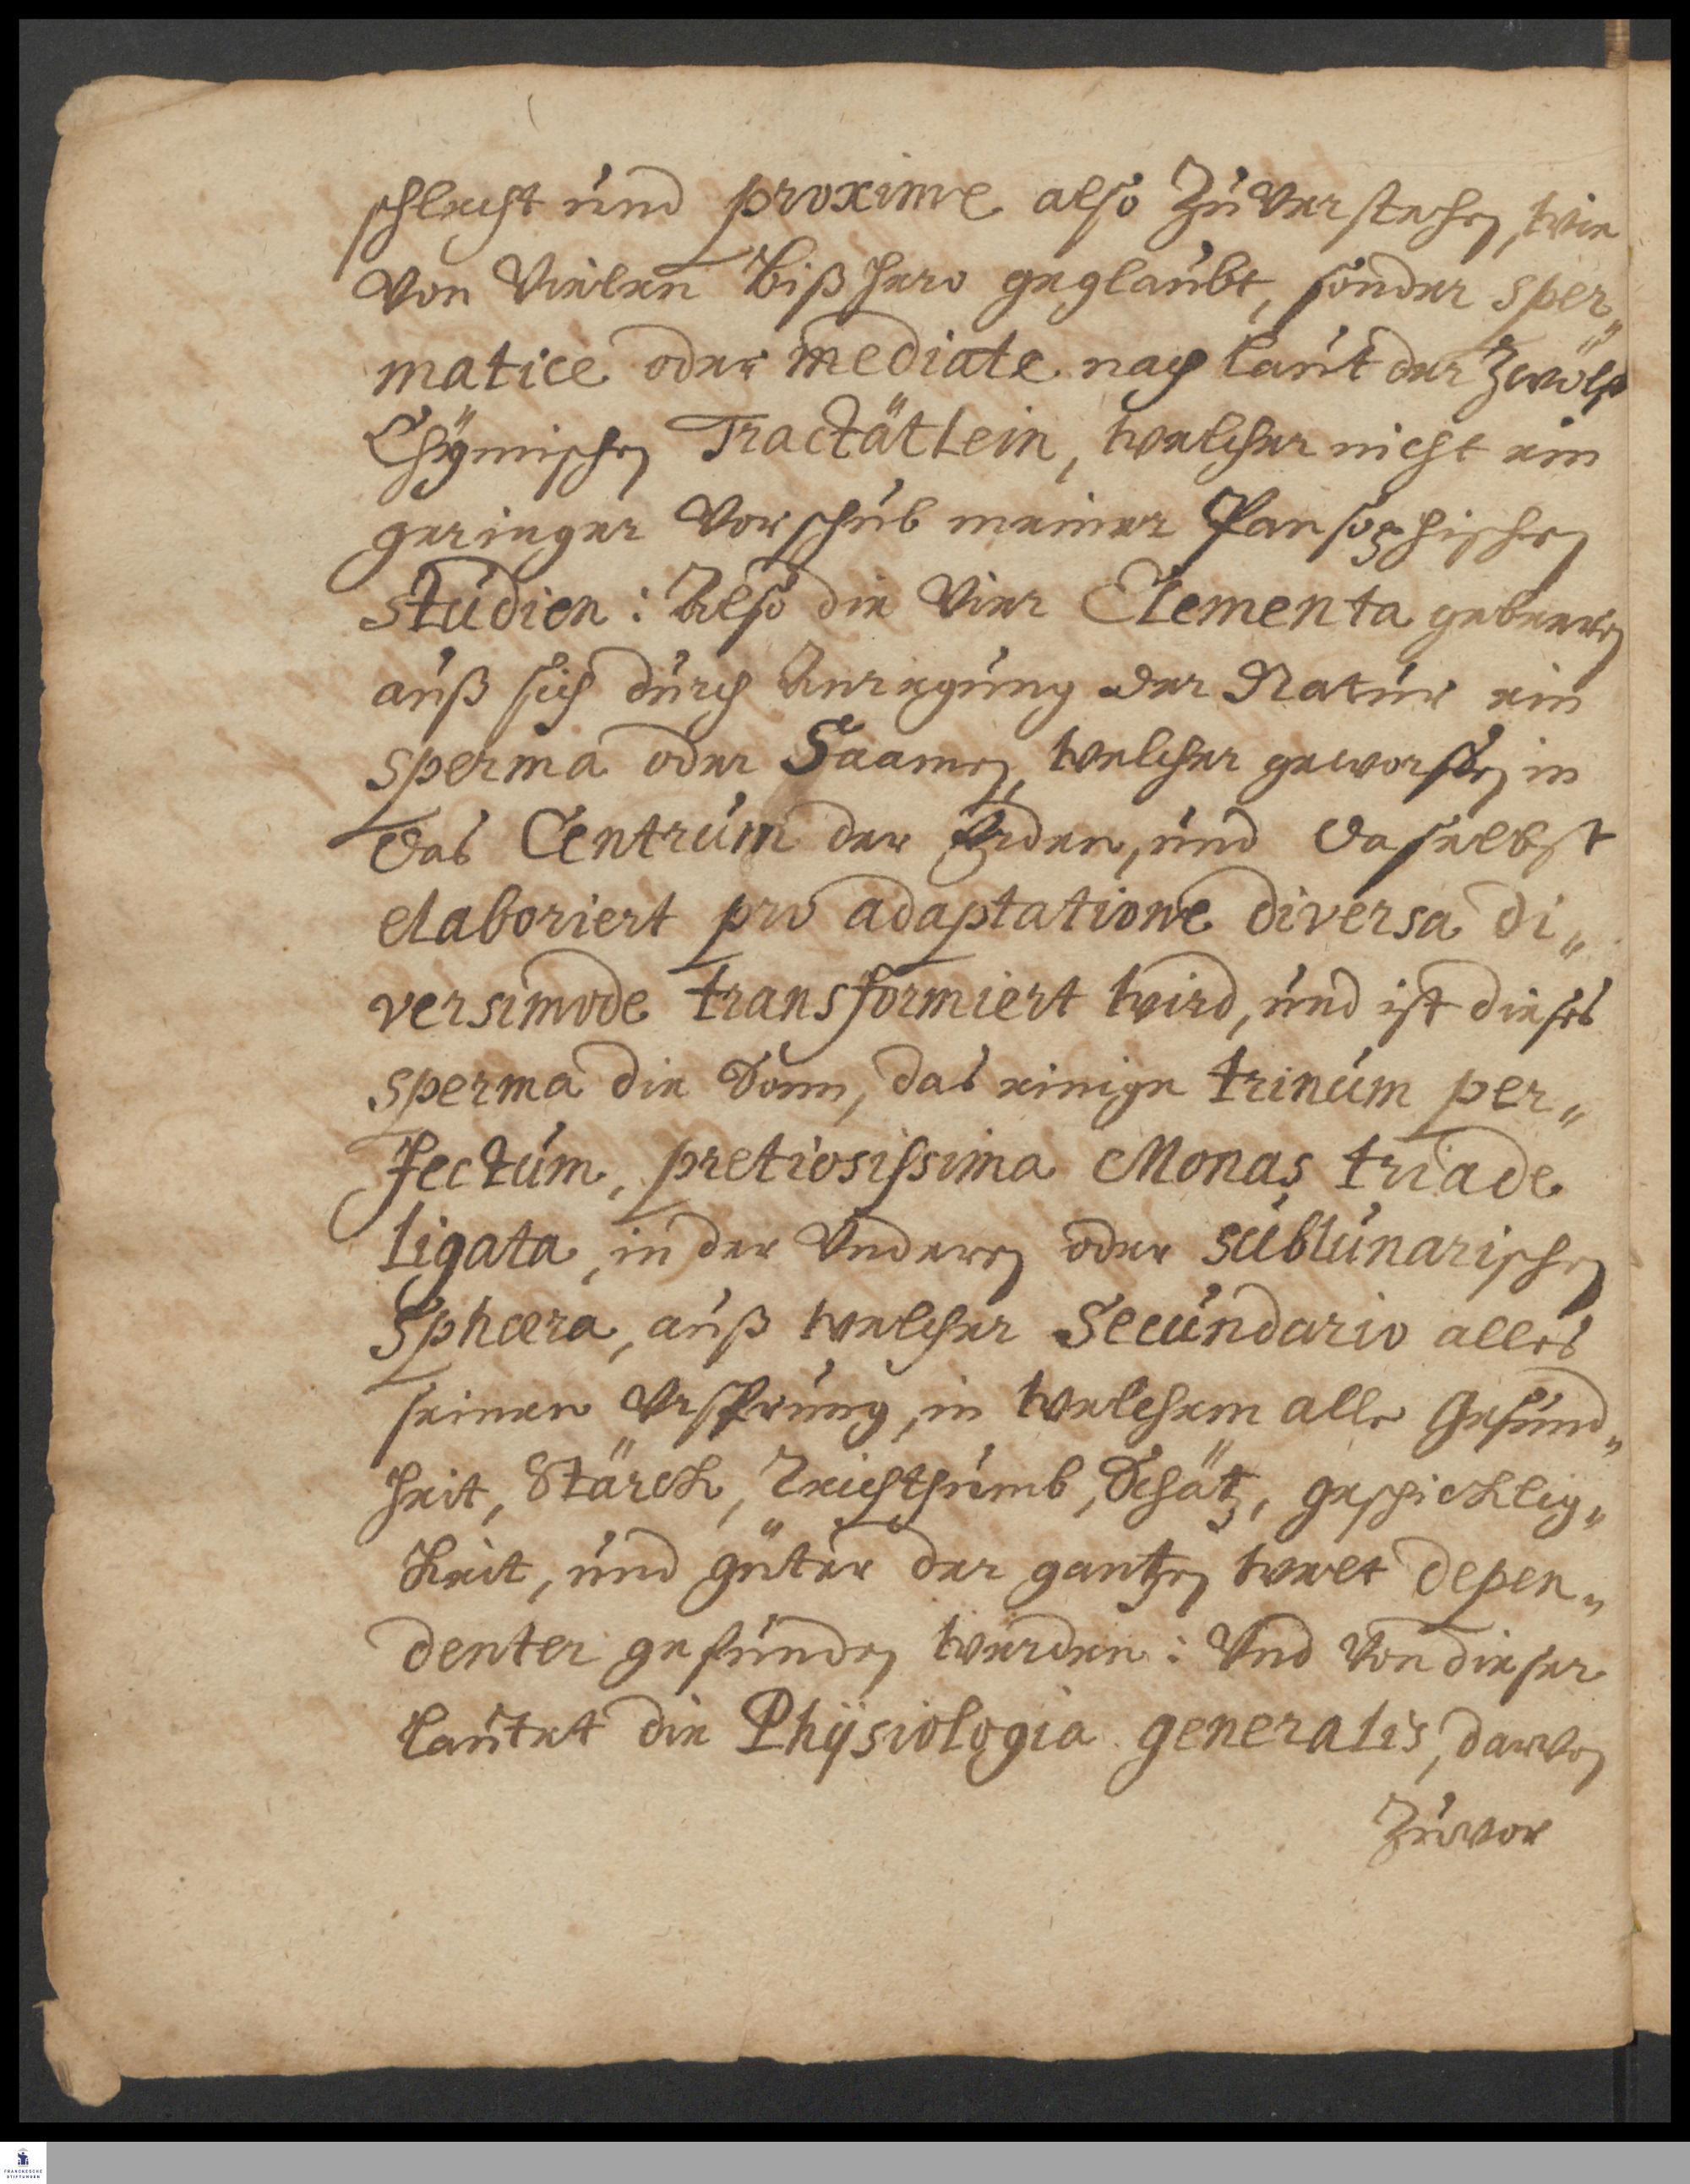 schlecht und proxime also Zuverstehen, wie
von vielen bißhero geglaubt, sonder sper„
matice oder mediate nach laut der Zwölff
Chÿmischen Tractätlein, welcher nicht ein
geringer Vorschub meiner Pansophischen
studien: Also die vier Elementa gebeeren
auß sich durch Anregung der Natur ein
sperma oder Saamen, welcher geworffen in
das Centrum der Erden, und daselbst
elaboriert pro adaptatione diversa di„
versimode transformiert wird, und ist dieses
sperma die Sonn, das einige trinum per„
fectum, pretiosissima Monas triade
ligata, in der Underen oder sublunarischen
Sphæra, auß welcher Secundario alles
seinen Ursprung, in welchem alle Gesund„
heit, Stärck, Reichthumb, Schätz, geschicklig„
keit, und güter der gantzen welt depen„
denter gefunden werden: Und von dieser
lautet die Phÿsiologia generalis, darvon
Zuvor
FRANCKESCHE
STIFTUNGEN